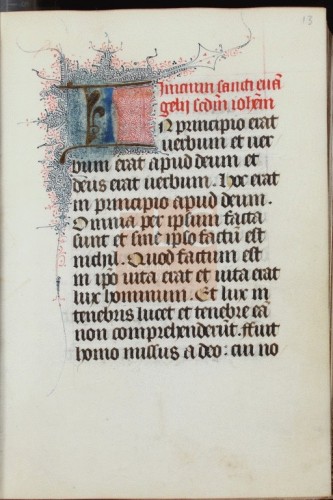 13
Initium sancti euā
gelij scdm iohem
In principio erat
uerbum et uer
bum erat apud deum et
deus erat uerbum. Hoc erat
in principio apud deum.
Omnia per ipsum facta
sunt et sine ipso factū est
nichil. Quod factum est
in ipō uita erat et uita erat
lux hominum. Et lux in
tenebris lucet et tenebre eā
non comprehenderūt. ffuit
homo missus a deo: cui no